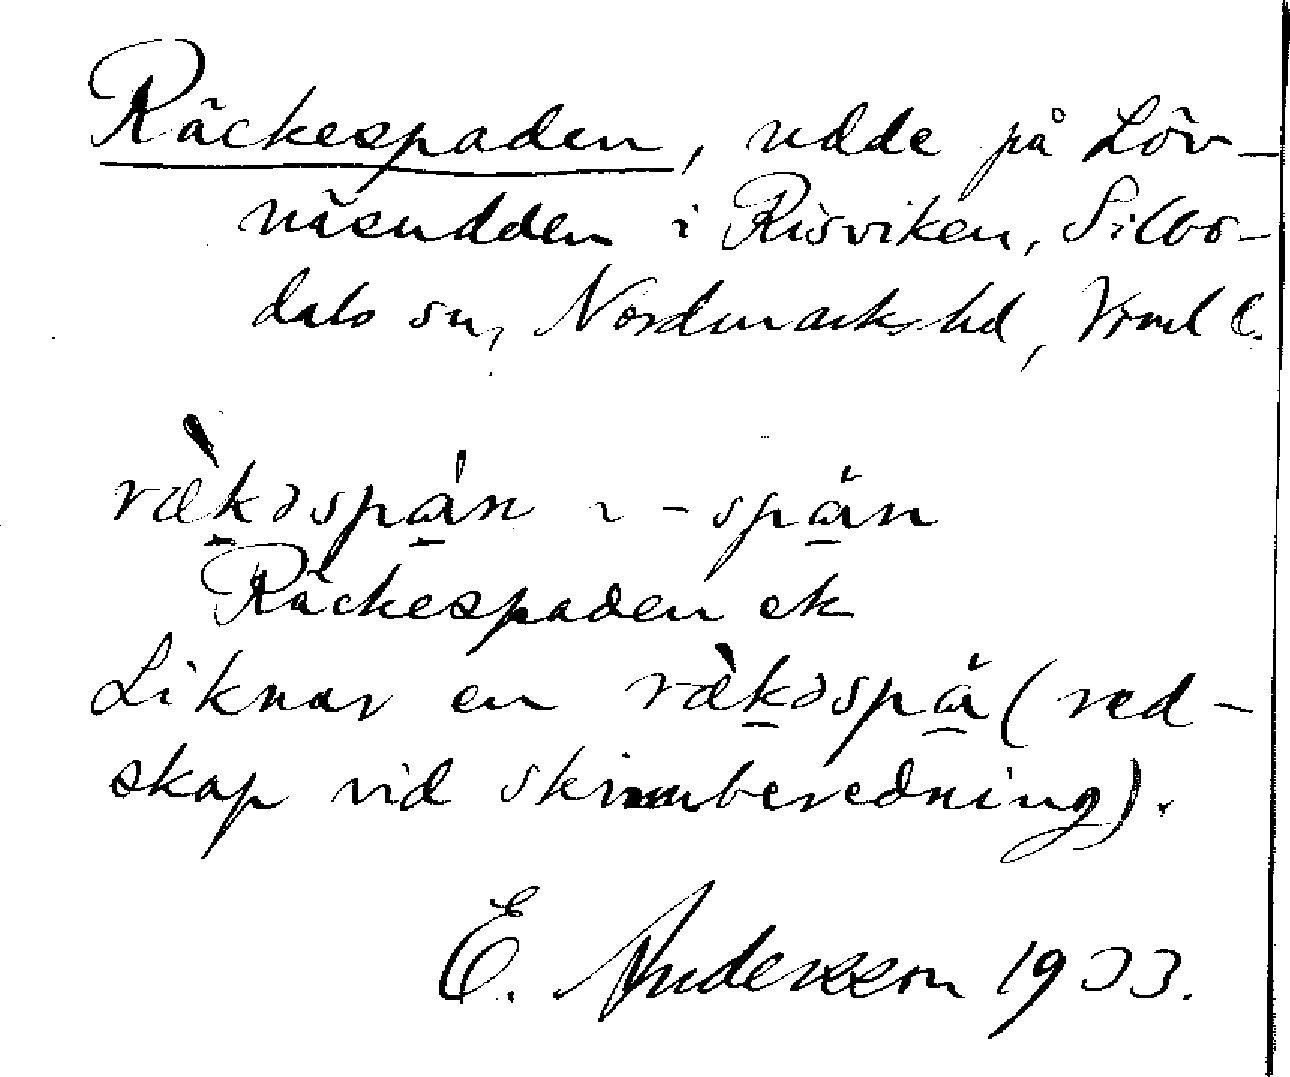 Räckespaden, udde på Löv-
näsudden i Risviken, Silbo-
dals sn, Nordmarks hd, Vrml l.
ræ̀kəspàn ~ -spän
Räckespaden ek
Liknar en ræ̀kəspä (red-
skap vid skinnberedning).
E. Andersson 1933.